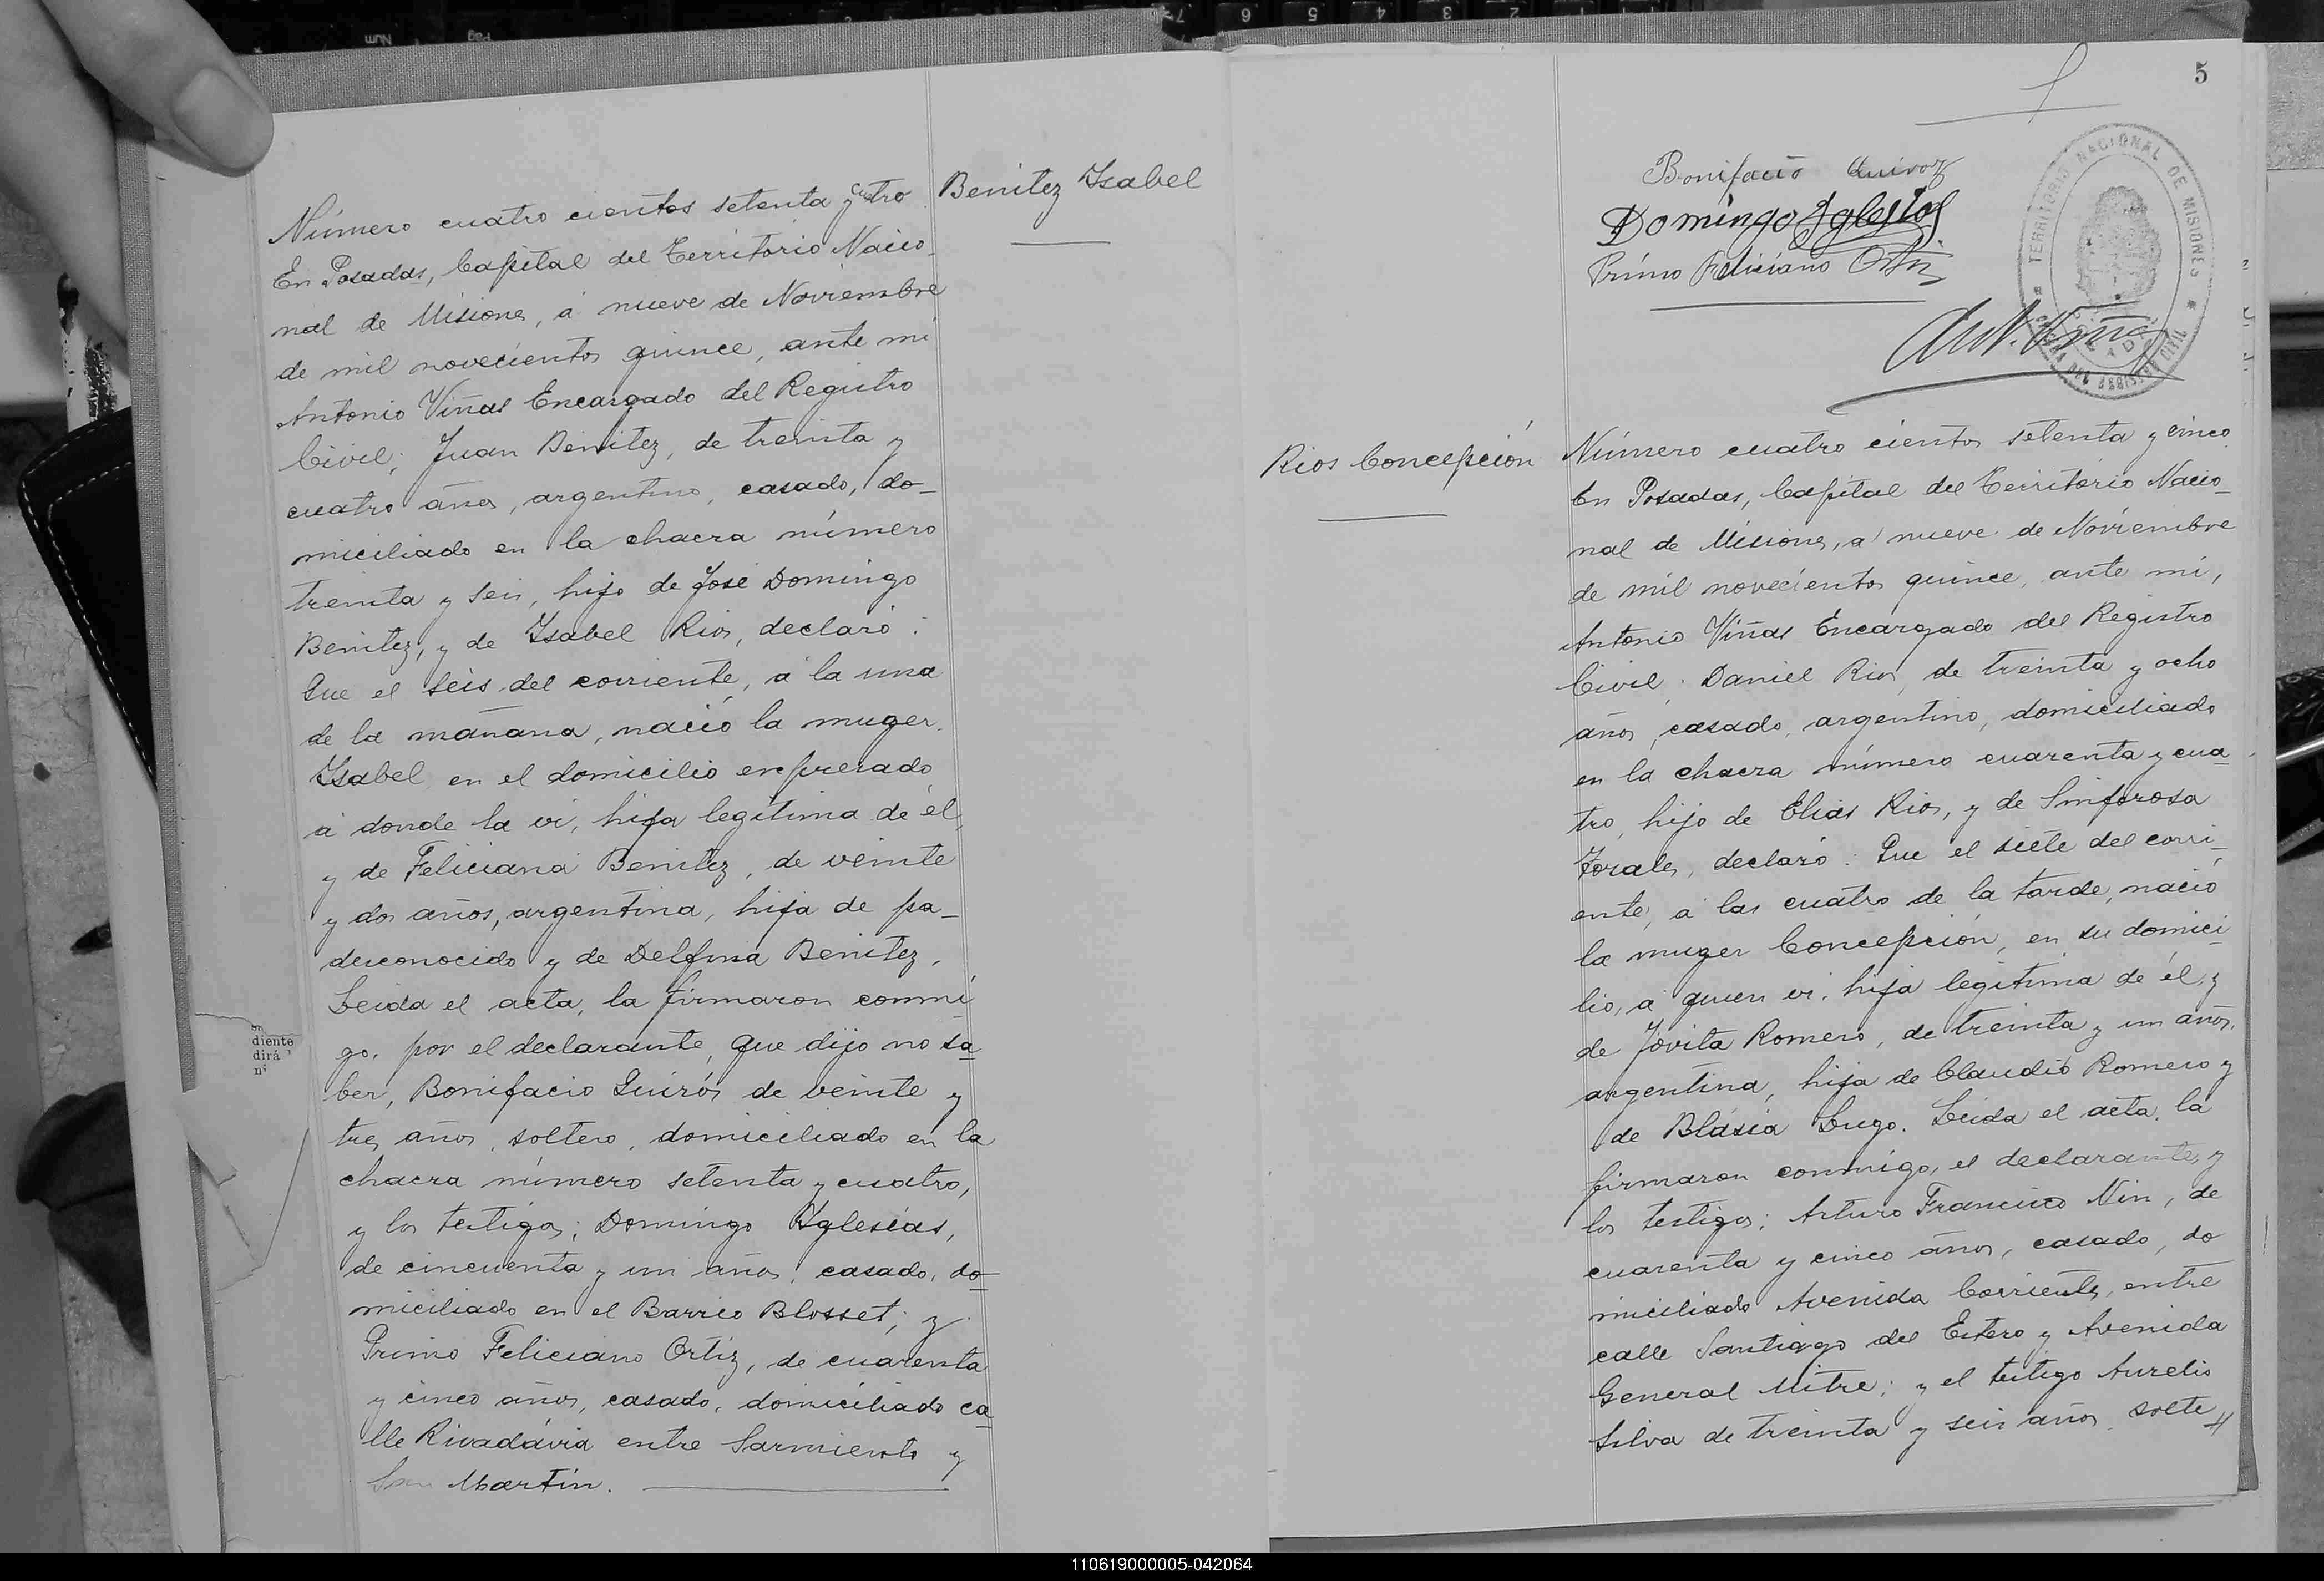 Benitez Ysabel
Número cuatro cientos setenta y ctro
En Posadas, Capital del Territorio Nacio_
nal de Misiones, á nueve de Noviembre
de mil novecientos quince, ante mi
Antonio Viñas Encargado del Registro
Civil; Juan Benitez, de treinta y
cuatro años, argentino, casado, do_
miciliado en la chacra número
treinta y seis, hijo de José Domingo
Benitez, y de Ysabel Rios, declaró:
Que el seis del corriente, á la una
de la mañana, nació la muger
Ysabel en el domicilio enpresado
á donde la vi, hija legítima de él,
y de Feliciana Benitez, de veinte
y dos años, argentina, hija de pa_
desconocido y de Delfina Benitez.
Leida el acta, la firmaron conmi
go, por el declarante, que dijo no sa
ber, Bonifacio Quirós de veinte y
tres años, soltero, domiciliado en la
chacra número setenta y cuatro,
y los testigos; Domingo Yglesias,
de cincuenta y un años, casado, do_
miciliado en el Barrio Blosset; y
Primo Feliciano Ortiz, de cuarenta
y cinco años, casado, domiciliado ca
lle Rivadávia entre Sarmiento y
San Martín.
diente
dirá
5
Bonifacio Quiroz
Domingo Yglesias
Primo Feliciano Ortiz
TERRITORIO NACIONAL DE MISIONES
Ant. Viñas
Rios Concepción
Número cuatro cientos setenta y cinco
En Posadas, Capital del Territorio Nacio_
nal de Misiones, a nueve de Noviembre
de mil novecientos quince, ante mi,
Antonio Viñas Encargado del Registro
Civil; Daniel Rios, de treinta y ocho
años, casado, argentino, domiciliado
en la chacra número cuarenta y cua
tro, hijo de Elias Rios, y de Sinforosa
declaró: Que el siete del corri_
ente, á las cuatro de la tarde, nació
la muger Concepción, en su domici
lio, á quien vi, hija legítima de él, y
de Jovita Romero, de treinta y un años,
argentina, hija de Claudio Romero y
de Blásia Lugo. Leida el acta, la
firmaron conmigo, el declarante, y
los testigos; Arturo Francisco Nin, de
cuarenta y cinco años, casado, do
miciliado Avenida Corrientes, entre
calle Santiago del Estero y Avenida
General Mitre; y el testigo Aurelio
Silva de treinta y seis años, solte
110619000005-042064